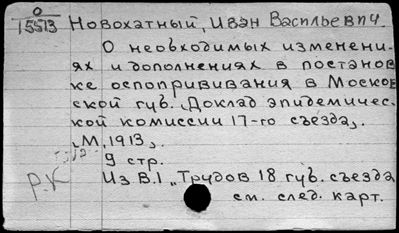 О
15573 Новохатный, Иван Васильевич.
О необходимых изменени-
ях и дополнениях в постанов
ке оспопрививания в Москов
ской губ. „Доклад эпидемичес-
кой комиссии 17-го съезда„.
„М, 1913„.
9 стр.
Р.К Из В.1 „Трудов 18 губ. съезда
см. след. карт.